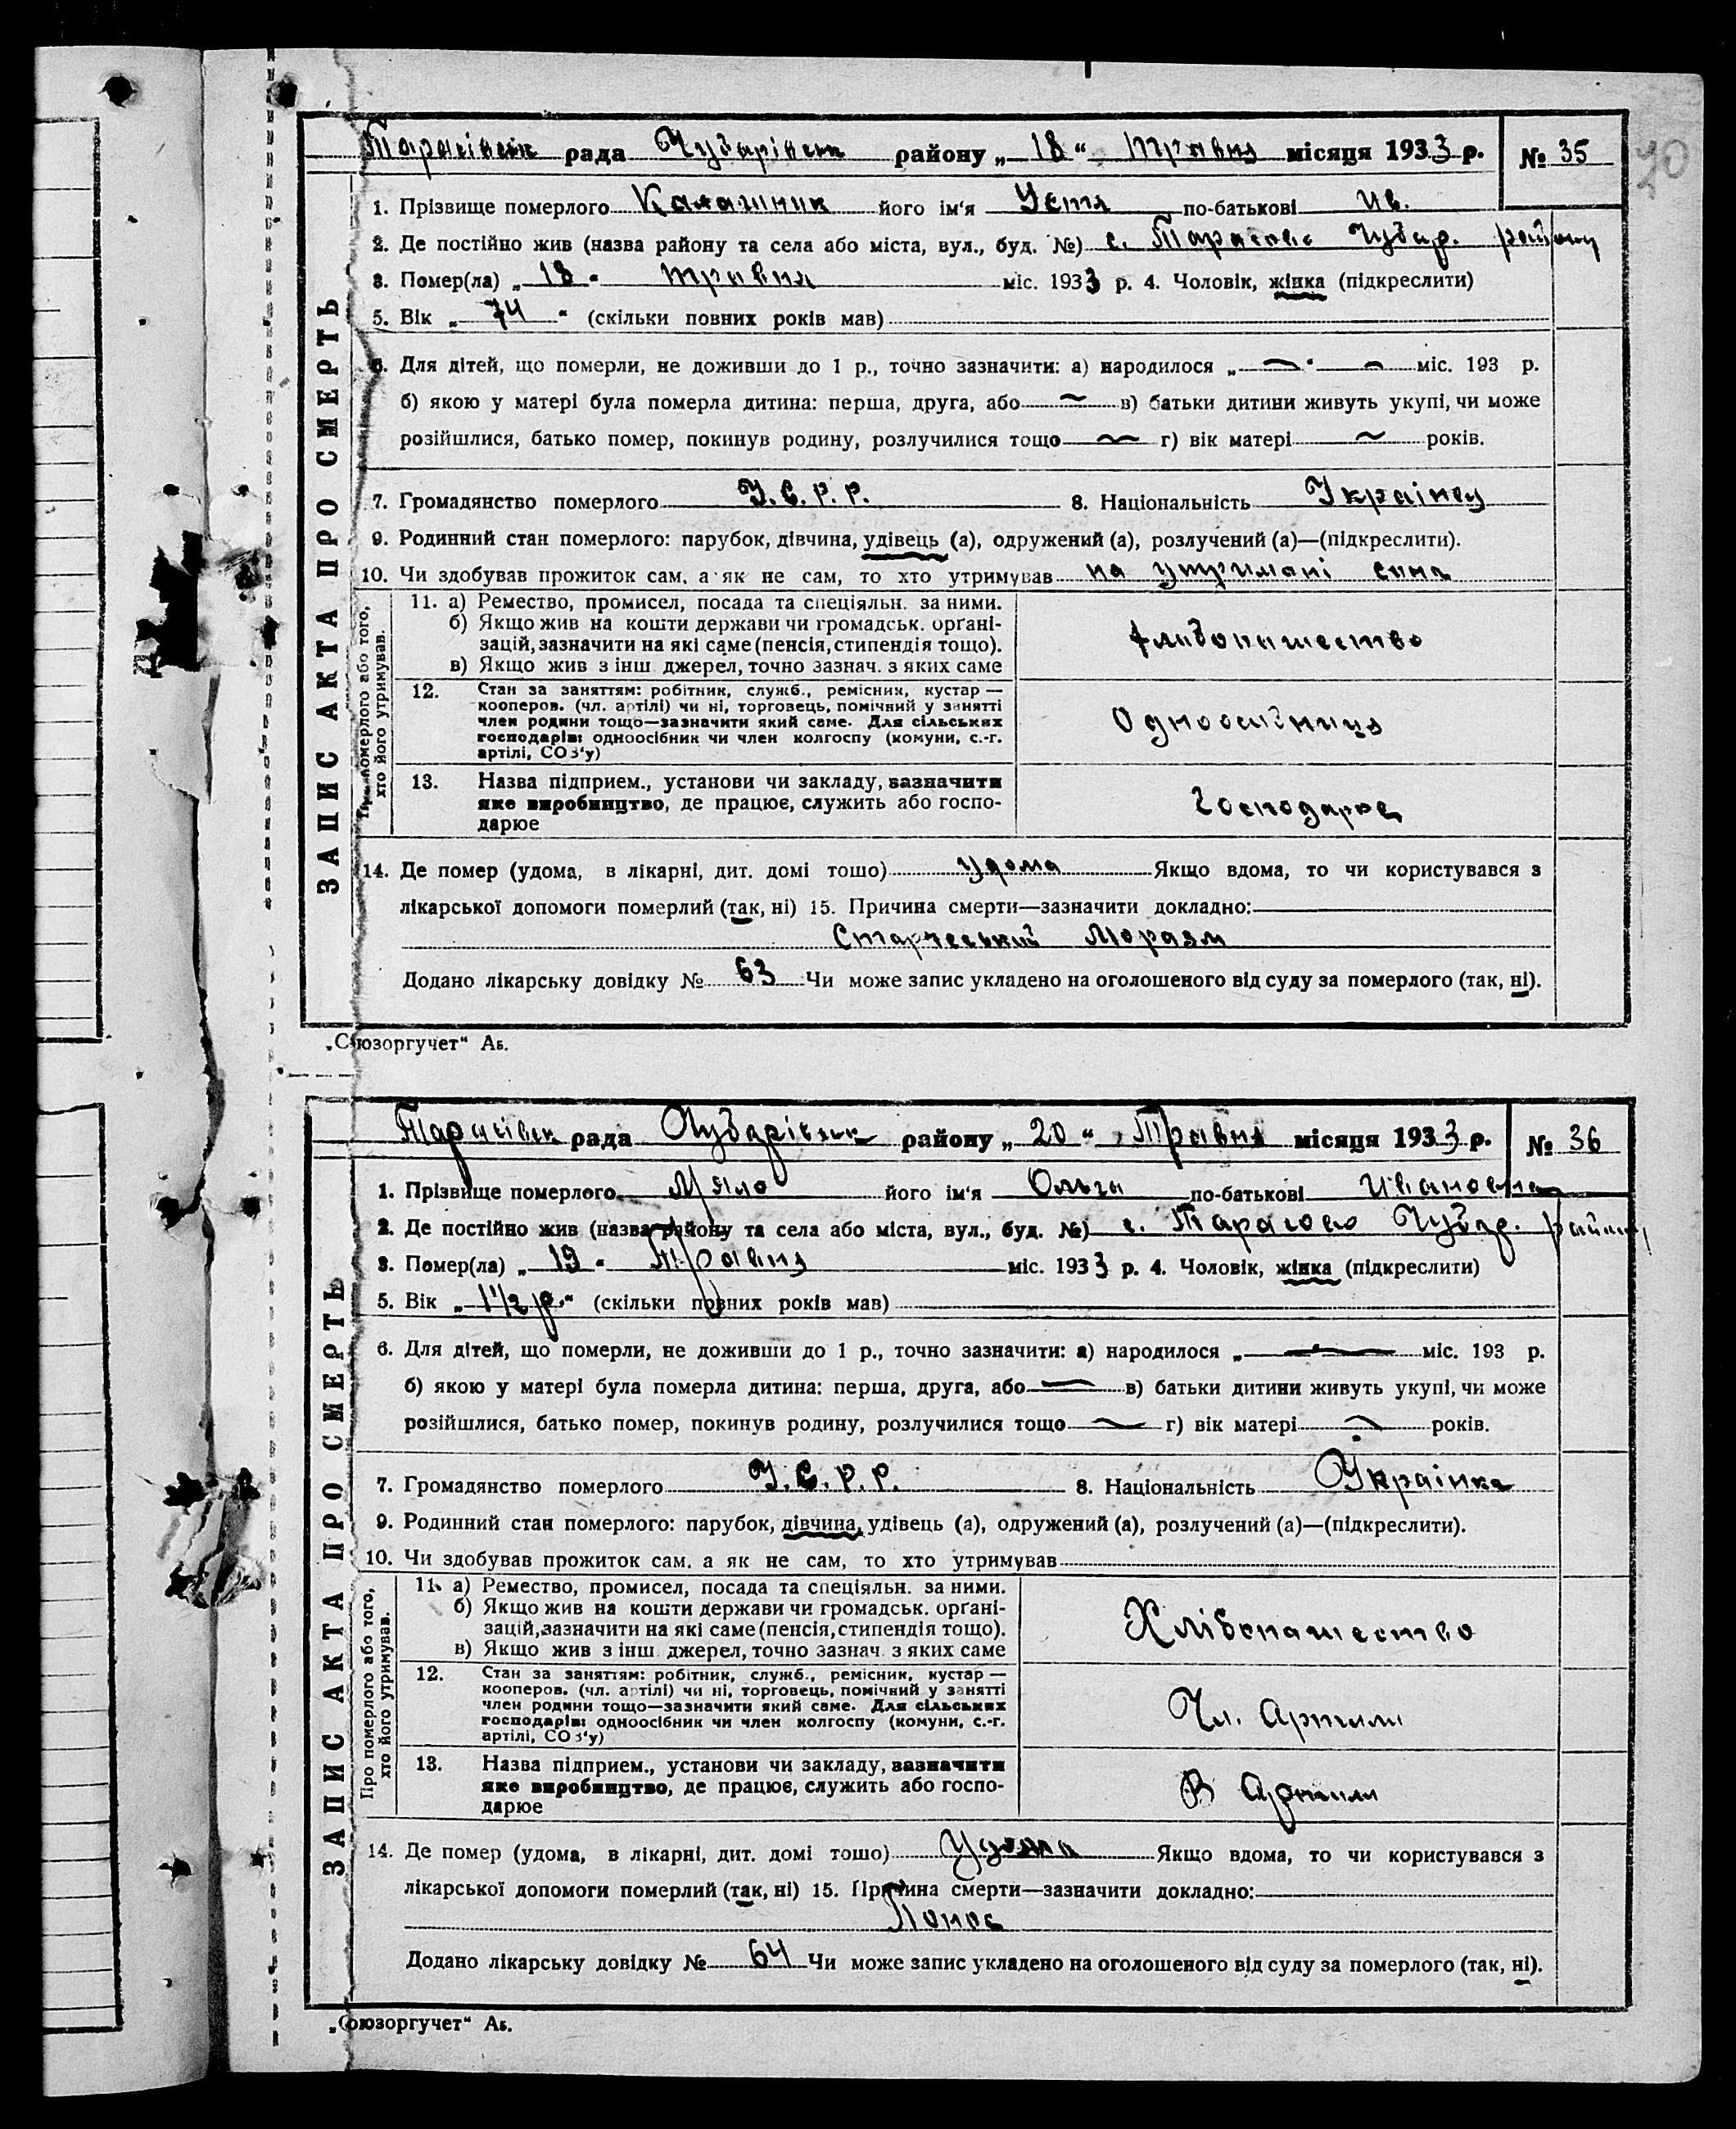 Тарасівськ рада Чубарівськ району „ 18 “ травня місяця 1933 р. № 35
20
1. Прізвище померлого Калашник його ім'я Устя по-батькові Ив.
2. Де постійно жив (назва району та села або міста, вул., буд. №) с. Тарасовс Чубар. району
3. Помер(ла) „ 18 “ травня міс. 1933 р. 4. Чоловік, жінка (підкреслити)
5. Вік „ 74 “ (скільки повних років мав)
6. Для дітей, що померли, не доживши до 1 р., точно зазначити: а) народилося „ — “ — міс. 193 р.
б) якою у матері була померла дитина: перша, друга, або ~ в) батьки дитини живуть укупі, чи може
розійшлися, батько помер, покинув родину, розлучилися тощо ~ г) вік матері ~ років.
7. Громадянство померлого У.С.Р.Р. 8. Національність
9. Родинний стан померлого: парубок, дівчина, удівець (а), одружений (а), розлучений (а)—(підкреслити).
10. Чи здобував прожиток сам, а як не сам, то хто утримував на утримані сина
ЗАПИС АКТА ПРО СМЕРТЬ
Про померлого або того,
хто його утримував.
11. а) Ремество, промисел, посада та спеціяльн. за ними.
б) Якщо жив на кошти держави чи громадськ. органі-
зацій, зазначити на які саме (пенсія, стипендія тощо).
в) Якщо жив з інш джерел, точно зазнач. з яких саме
хлибопашество
12. Стан за заняттям: робітник, служб., ремісник, кустар —
кооперов. (чл. артілі) чи ні, торговець, помічний у занятті
член родини тощо—зазначити який саме. Для сільських
господарів: одноосібник чи член колгоспу (комуни, с.-г.
артілі, СОЗ'у)
Одноосибниця
13. Назва підприєм., установи чи закладу, зазначити
яке виробництво, де працює, служить або госпо-
дарює
Господарює
14. Де помер (удома, в лікарні, дит. домі тощо) удома Якщо вдома, то чи користувався з
лікарської допомоги померлий (так, ні) 15. Причина смерти—зазначити докладно:
Старческий Моразм
Додано лікарську довідку № 63 Чи може запис укладено на оголошеного від суду за померлого (так, ні).
„Союзоргучет“ Аб.
Тарасівськ рада Чубарівськ району „ 20 “ Травня місяця 1933 р. № 36
1. Прізвище померлого Мяло його ім'я Ольга по-батькові Ивановна
2. Де постійно жив (назва району та села або міста, вул., буд. №) с. Тарасово Чубар. району
3. Помер(ла) „ 19 “ Травня міс. 1933 р. 4. Чоловік, жінка (підкреслити)
5. Вік „ 1 1/2 р. “ (скільки повних років мав)
6. Для дітей, що померли, не доживши до 1 р., точно зазначити: а) народилося „ — міс. 193 р.
б) якою у матері була померла дитина: перша, друга, або — в) батьки дитини живуть укупі, чи може
розійшлися, батько помер, покинув родину, розлучилися тощо ~ г) вік матері ~ років.
7. Громадянство померлого У.С.Р.Р. 8. Національність Українка
9. Родинний стан померлого: парубок, дівчина, удівець (а), одружений (а), розлучений (а)—(підкреслити).
10. Чи здобував прожиток сам, а як не сам, то хто утримував
ЗАПИС АКТА ПРО СМЕРТЬ
Про померлого або того,
хто його утримував.
11. а) Ремество, промисел, посада та спеціяльн. за ними.
б) Якщо жив на кошти держави чи громадськ. органі-
зацій, зазначити на які саме (пенсія, стипендія тощо).
в) Якщо жив з інш джерел, точно зазнач. з яких саме
Хлібопашество
12. Стан за заняттям: робітник, служб., ремісник, кустар —
кооперов. (чл. артілі) чи ні, торговець, помічний у занятті
член родини тощо—зазначити який саме. Для сільських
господарів: одноосібник чи член колгоспу (комуни, с.-г.
артілі, СОЗ'у)
Чл. Артили
13. Назва підприєм., установи чи закладу, зазначити
яке виробництво, де працює, служить або госпо-
дарює
В Артили
14. Де помер (удома, в лікарні, дит. домі тощо) Удома Якщо вдома, то чи користувався з
лікарської допомоги померлий (так, ні) 15. Причина смерти—зазначити докладно:
Понос
Додано лікарську довідку № 64 Чи може запис укладено на оголошеного від суду за померлого (так, ні).
„Союзоргучет“ Аб.